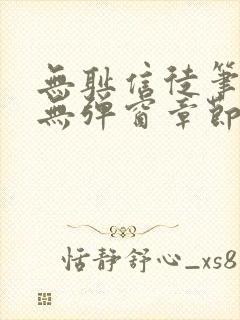 無恥信徒筆
無彈窗章節
恬靜舒心_xs8